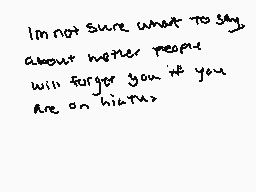 Im not sure what to say
about wether people
will forget you if you
are on hiatus